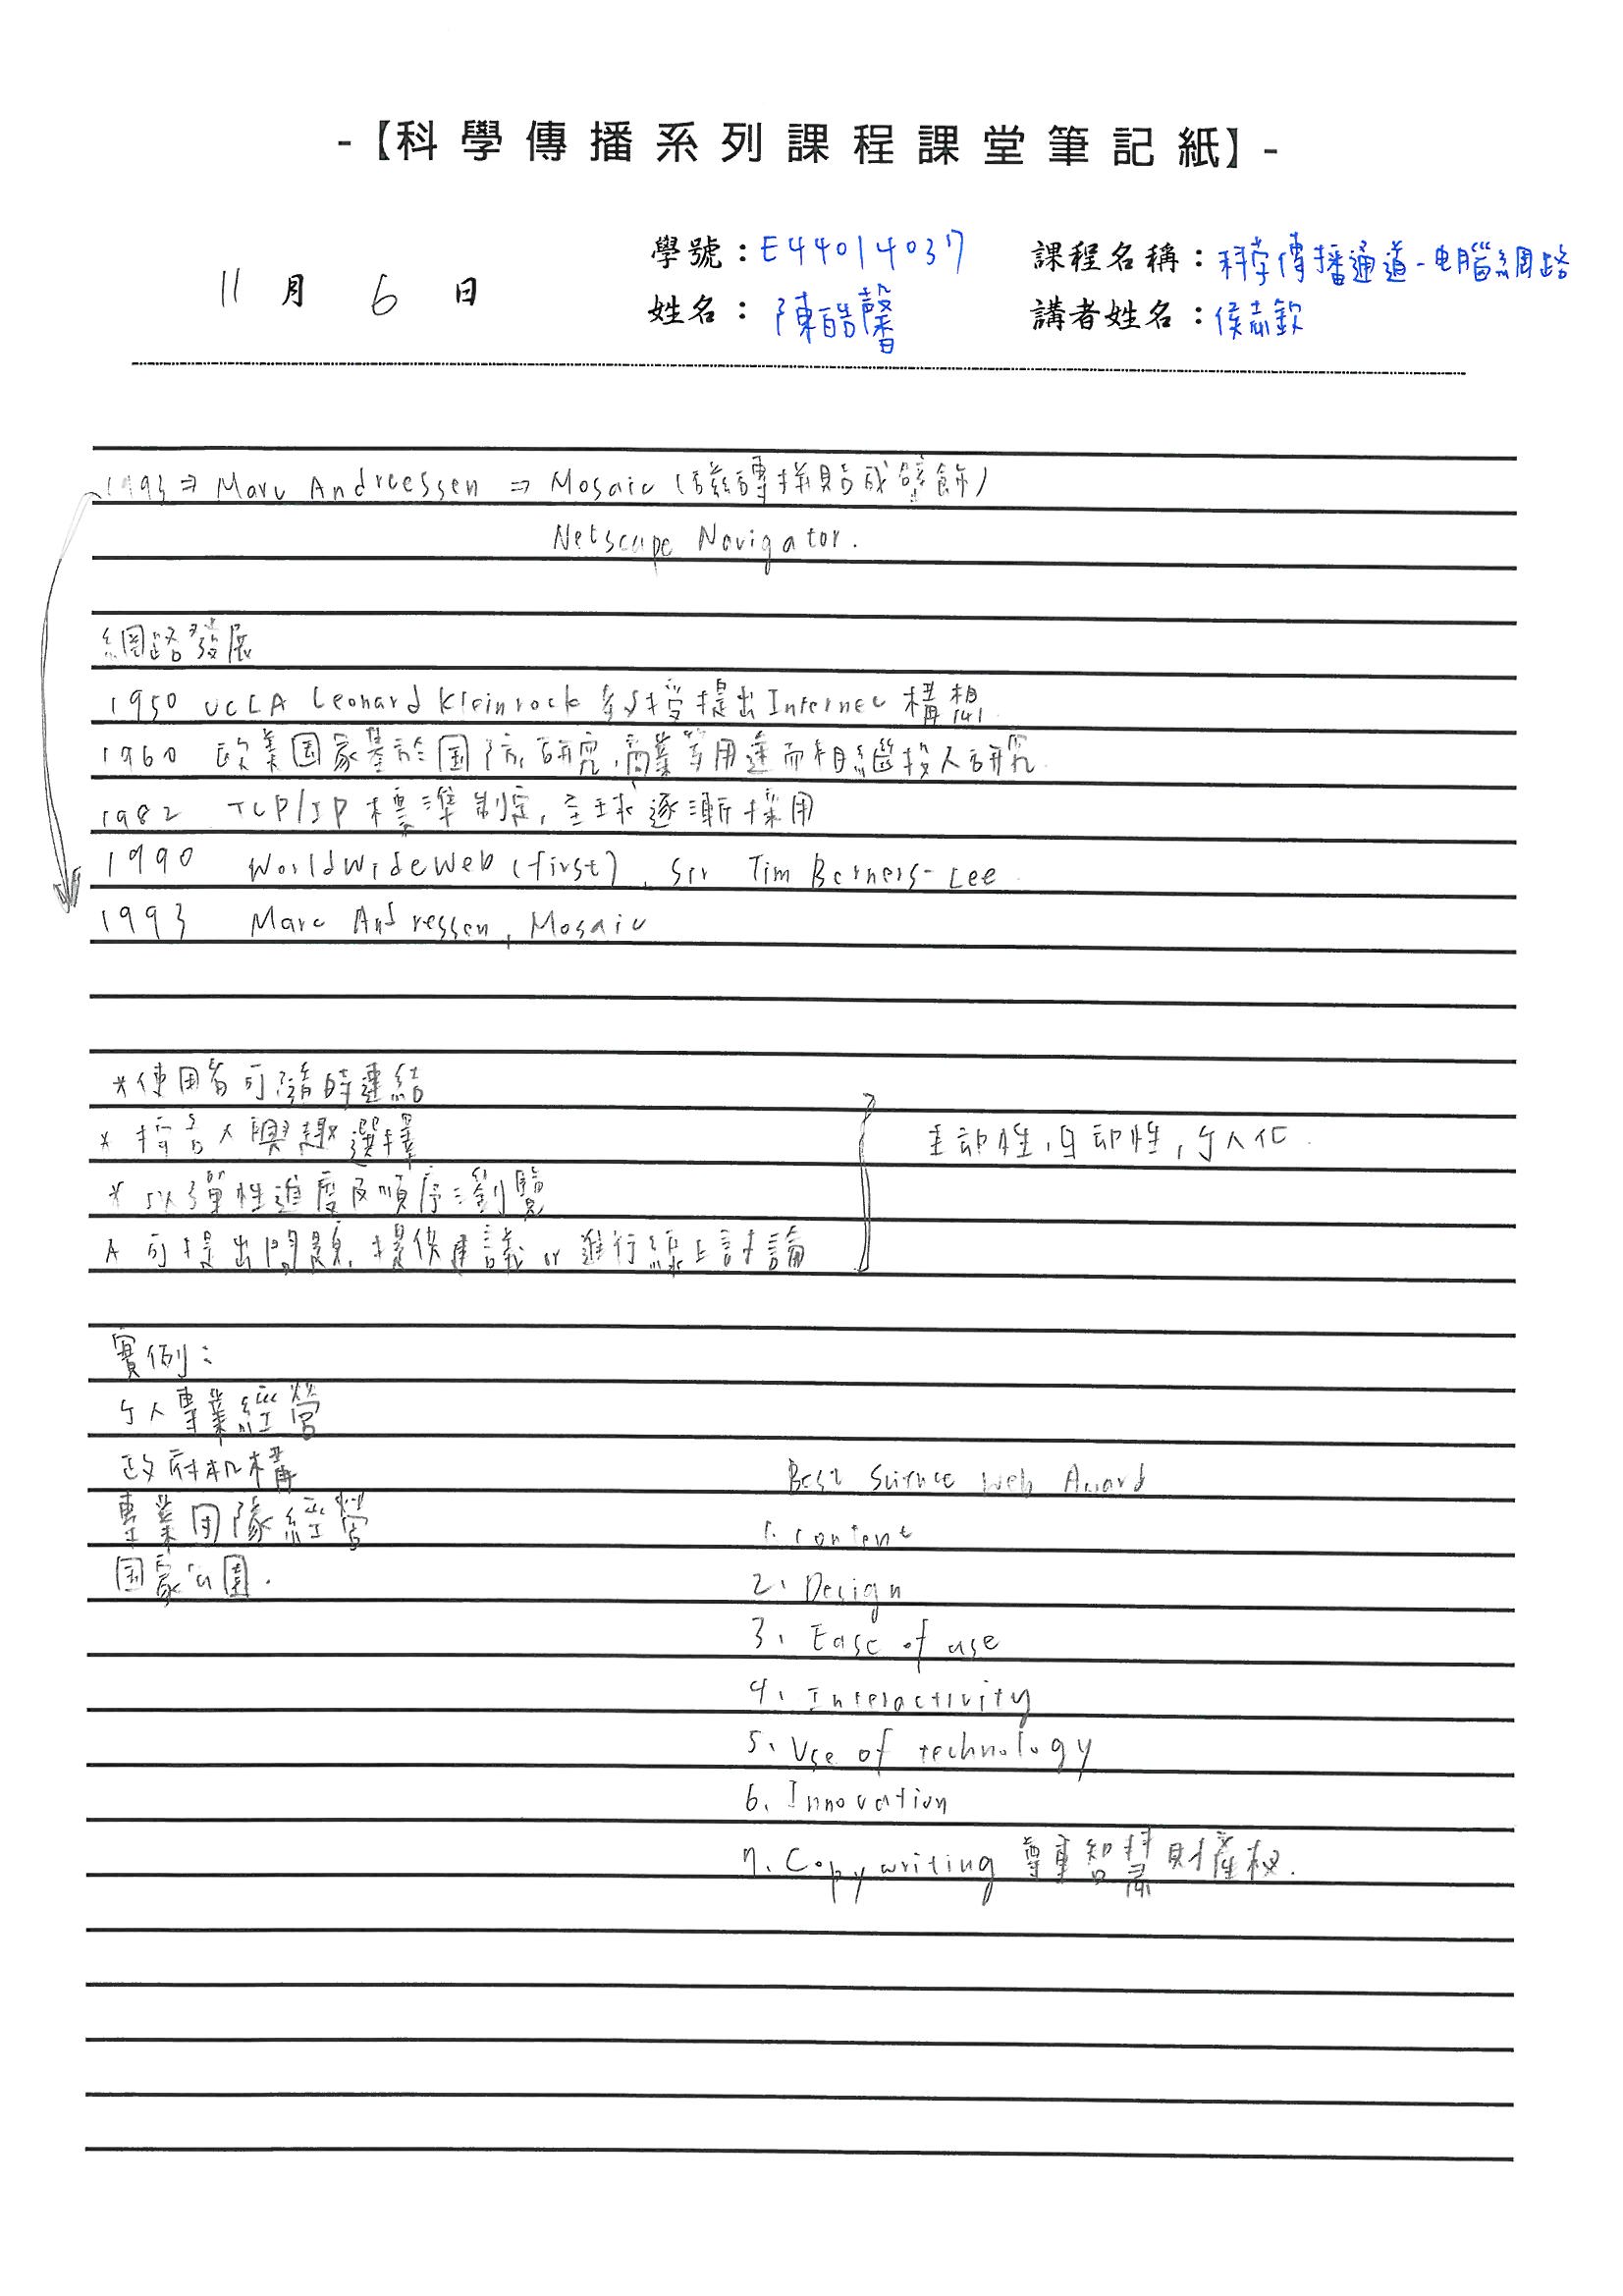 -【科學傳播系列課程課堂筆記紙】-
11月6日
學號：E44014037
課程名稱：科学傳播通道-电腦網路
姓名：陳皓馨
講者姓名：侯志欽
1993⇒ Marc Andreessen ⇒ Mosaic (磁磚拼貼成壁飾)
Netscape Navigator.
網路發展
1950 UCLA Leonard Kleinrock 教授提出Internet 構想
1960 欧美国家基於国防,研究,商業等用途而相繼投入研究
1982 TCP/IP 標準制定, 全球逐漸採用
1990 WorldWideWeb (first), Sir Tim Berners-Lee
1993 Marc Andressen, Mosaic
*使用者可隨時連結
* 按言人興趣選擇
* 以彈性進度及順序瀏覽
* 可提出問題, 提供建議 or 進行線上討論
主动性, 互动性, 个人化.
實例：
个人專業經營
政府机構
專業团隊經營
国家公園.
Best Science Web Award
1. Content
2. Design
3. Ease of use
4. Interactivity
5. Use of technology
6. Innovation
7. Copywriting 尊重智慧財產权.